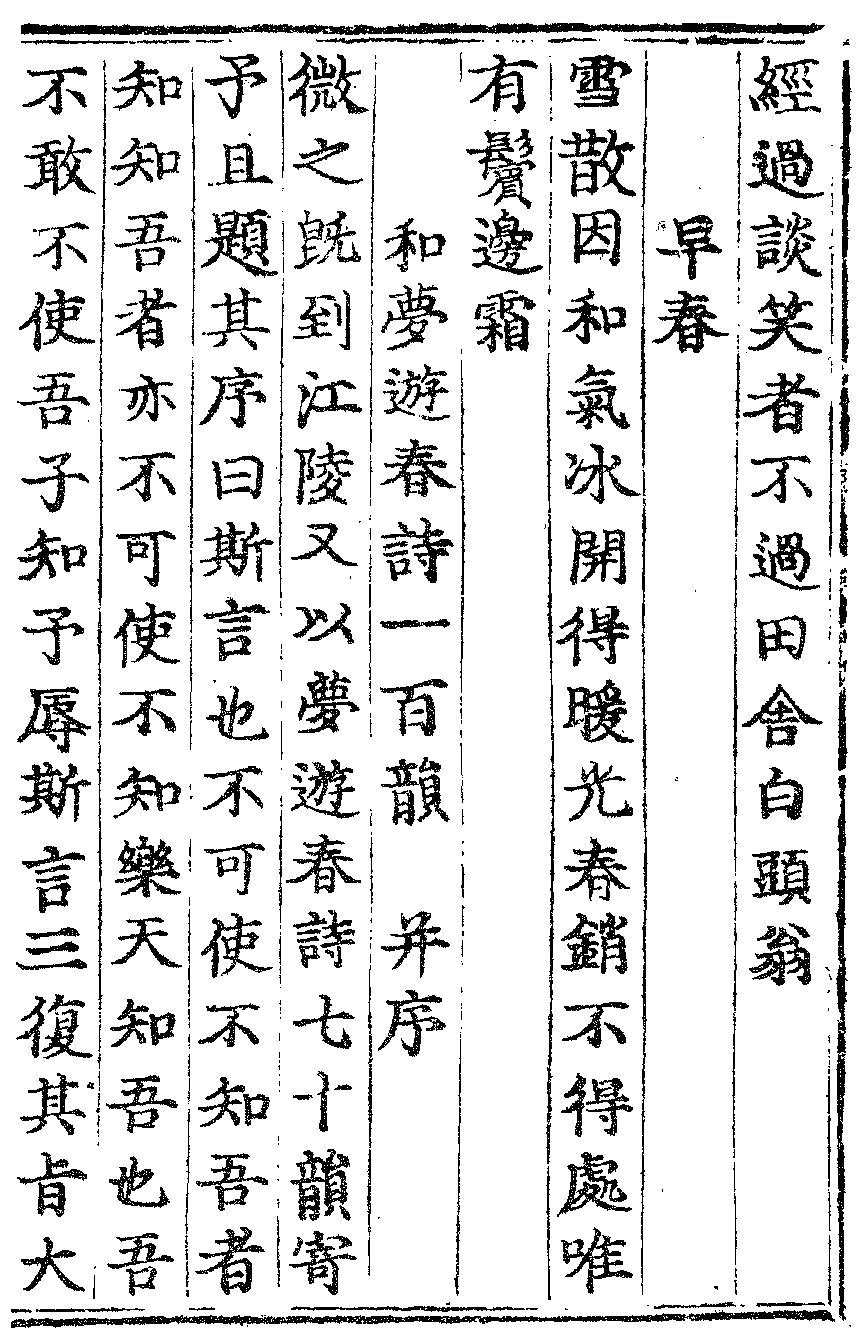 經過談笑者不過田舍白頭翁
早春
雪散因和氣冰開得暖光春銷不得處唯
有鬢邊霜
和夢遊春詩一百韻 并序
微之旣到江陵又以夢遊春詩七十韻寄
予且題其序曰斯言也不可使不知吾者
知知吾者亦不可使不知樂天知吾也吾
不敢不使吾子知予辱斯言三復其旨大